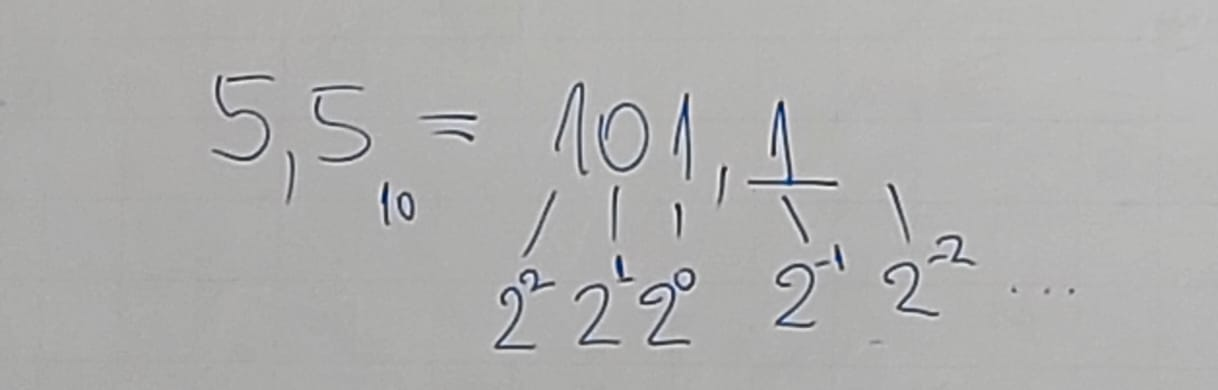 5,5₁₀ = 101,1
2² 2¹ 2⁰ 2⁻¹ 2⁻² ...